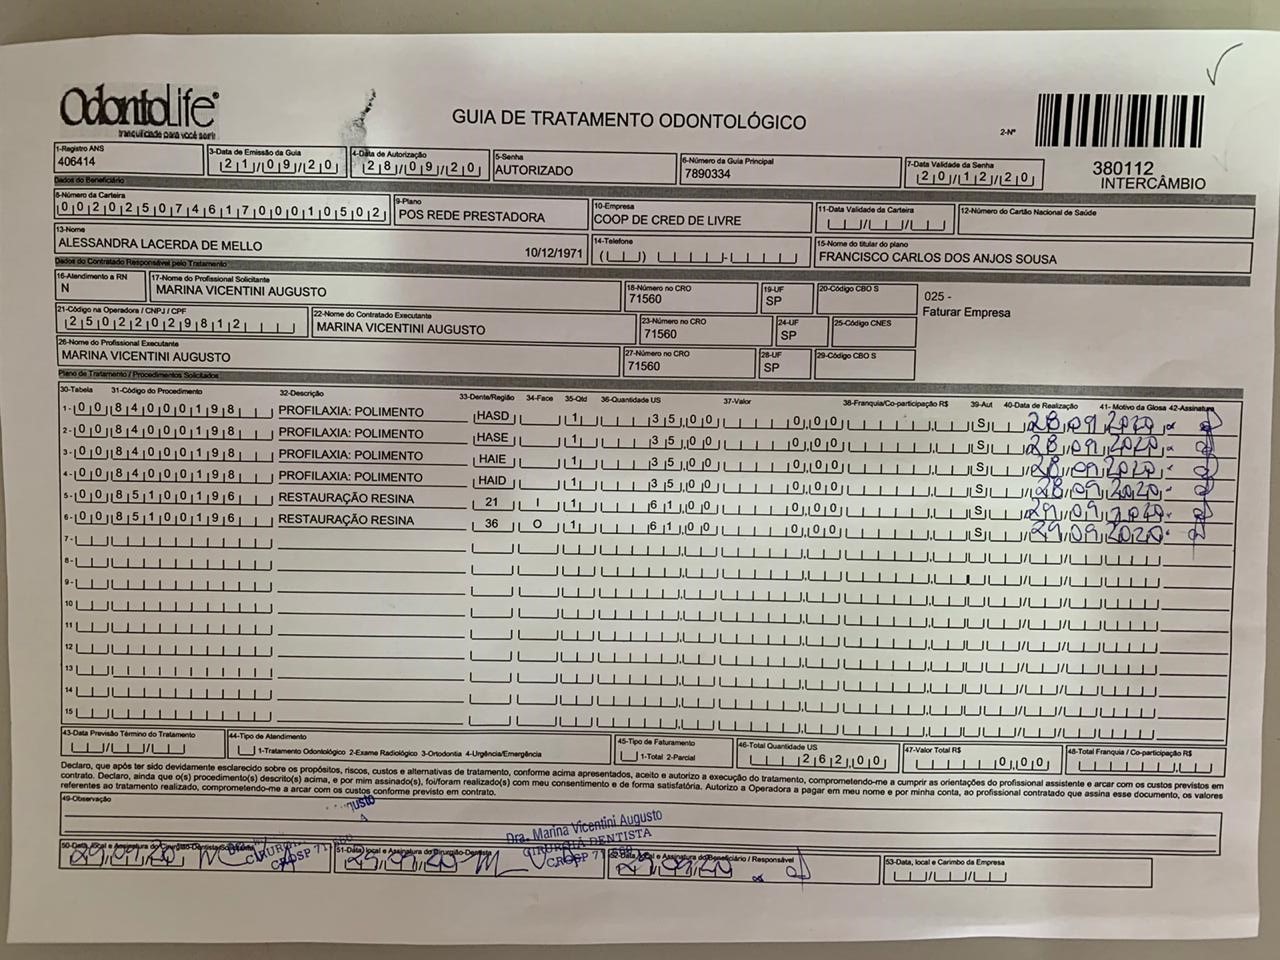 OdontoLife®
tranquilidade para você sorrir
GUIA DE TRATAMENTO ODONTOLÓGICO
2-Nº
380112
INTERCÂMBIO
1-Registro ANS
406414
3-Data de Emissão da Guia
21/09/20
4-Data de Autorização
28/09/20
5-Senha
AUTORIZADO
6-Número da Guia Principal
7890334
7-Data Validade da Senha
20/12/20
Dados do Beneficiário
8-Número da Carteira
00202507461700010502
9-Plano
POS REDE PRESTADORA
10-Empresa
COOP DE CRED DE LIVRE
11-Data Validade da Carteira
12-Número do Cartão Nacional de Saúde
13-Nome
ALESSANDRA LACERDA DE MELLO 10/12/1971
14-Telefone
15-Nome do titular do plano
FRANCISCO CARLOS DOS ANJOS SOUSA
Dados do Contratado Responsável pelo Tratamento
16-Atendimento a RN
N
17-Nome do Profissional Solicitante
MARINA VICENTINI AUGUSTO
18-Número no CRO
71560
19-UF
SP
20-Código CBO S
025 -
Faturar Empresa
21-Código na Operadora / CNPJ / CPF
25022029812
22-Nome do Contratado Executante
MARINA VICENTINI AUGUSTO
23-Número no CRO
71560
24-UF
SP
25-Código CNES
26-Nome do Profissional Executante
MARINA VICENTINI AUGUSTO
27-Número no CRO
71560
28-UF
SP
29-Código CBO S
Plano de Tratamento / Procedimentos Solicitados
30-Tabela 31-Código do Procedimento 32-Descrição 33-Dente/Região 34-Face 35-Qtd 36-Quantidade US 37-Valor 38-Franquia/Co-participação R$ 39-Aut 40-Data de Realização 41- Motivo da Glosa 42-Assinatura
1- 00 84000198 PROFILAXIA: POLIMENTO HASD 1 35,00 0,00 S 28/09/2020
2- 00 84000198 PROFILAXIA: POLIMENTO HASE 1 35,00 0,00 S 28/09/2020
3- 00 84000198 PROFILAXIA: POLIMENTO HAIE 1 35,00 0,00 S 28/09/2020
4- 00 84000198 PROFILAXIA: POLIMENTO HAID 1 35,00 0,00 S 28/09/2020
5- 00 85100196 RESTAURAÇÃO RESINA 21 I 1 61,00 0,00 S 29/09/2020
6- 00 85100196 RESTAURAÇÃO RESINA 36 O 1 61,00 0,00 S 29/09/2020
7-
8-
9-
10
11
12
13
14
15
43-Data Previsão Término do Tratamento
44-Tipo de Atendimento
1-Tratamento Odontológico 2-Exame Radiológico 3-Ortodontia 4-Urgência/Emergência
45-Tipo de Faturamento
1-Total 2-Parcial
46-Total Quantidade US
262,00
47-Valor Total R$
0,00
48-Total Franquia / Co-participação R$
Declaro, que após ter sido devidamente esclarecido sobre os propósitos, riscos, custos e alternativas de tratamento, conforme acima apresentados, aceito e autorizo a execução do tratamento, comprometendo-me a cumprir as orientações do profissional assistente e arcar com os custos previstos em
contrato. Declaro, ainda que o(s) procedimento(s) descrito(s) acima, e por mim assinado(s), foi/foram realizado(s) com meu consentimento e de forma satisfatória. Autorizo a Operadora a pagar em meu nome e por minha conta, ao profissional contratado que assina esse documento, os valores
referentes ao tratamento realizado, comprometendo-me a arcar com os custos conforme previsto em contrato.
49-Observação
Dra. Marina Vicentini Augusto
CIRURGIÃ DENTISTA
CROSP 71.560
50-Data, local e Assinatura do Cirurgião-Dentista Solicitante
29/09/20
51-Data, local e Assinatura do Cirurgião-Dentista
29/09/20
52-Data, local e Assinatura do Beneficiário / Responsável
29/09/20
53-Data, local e Carimbo da Empresa